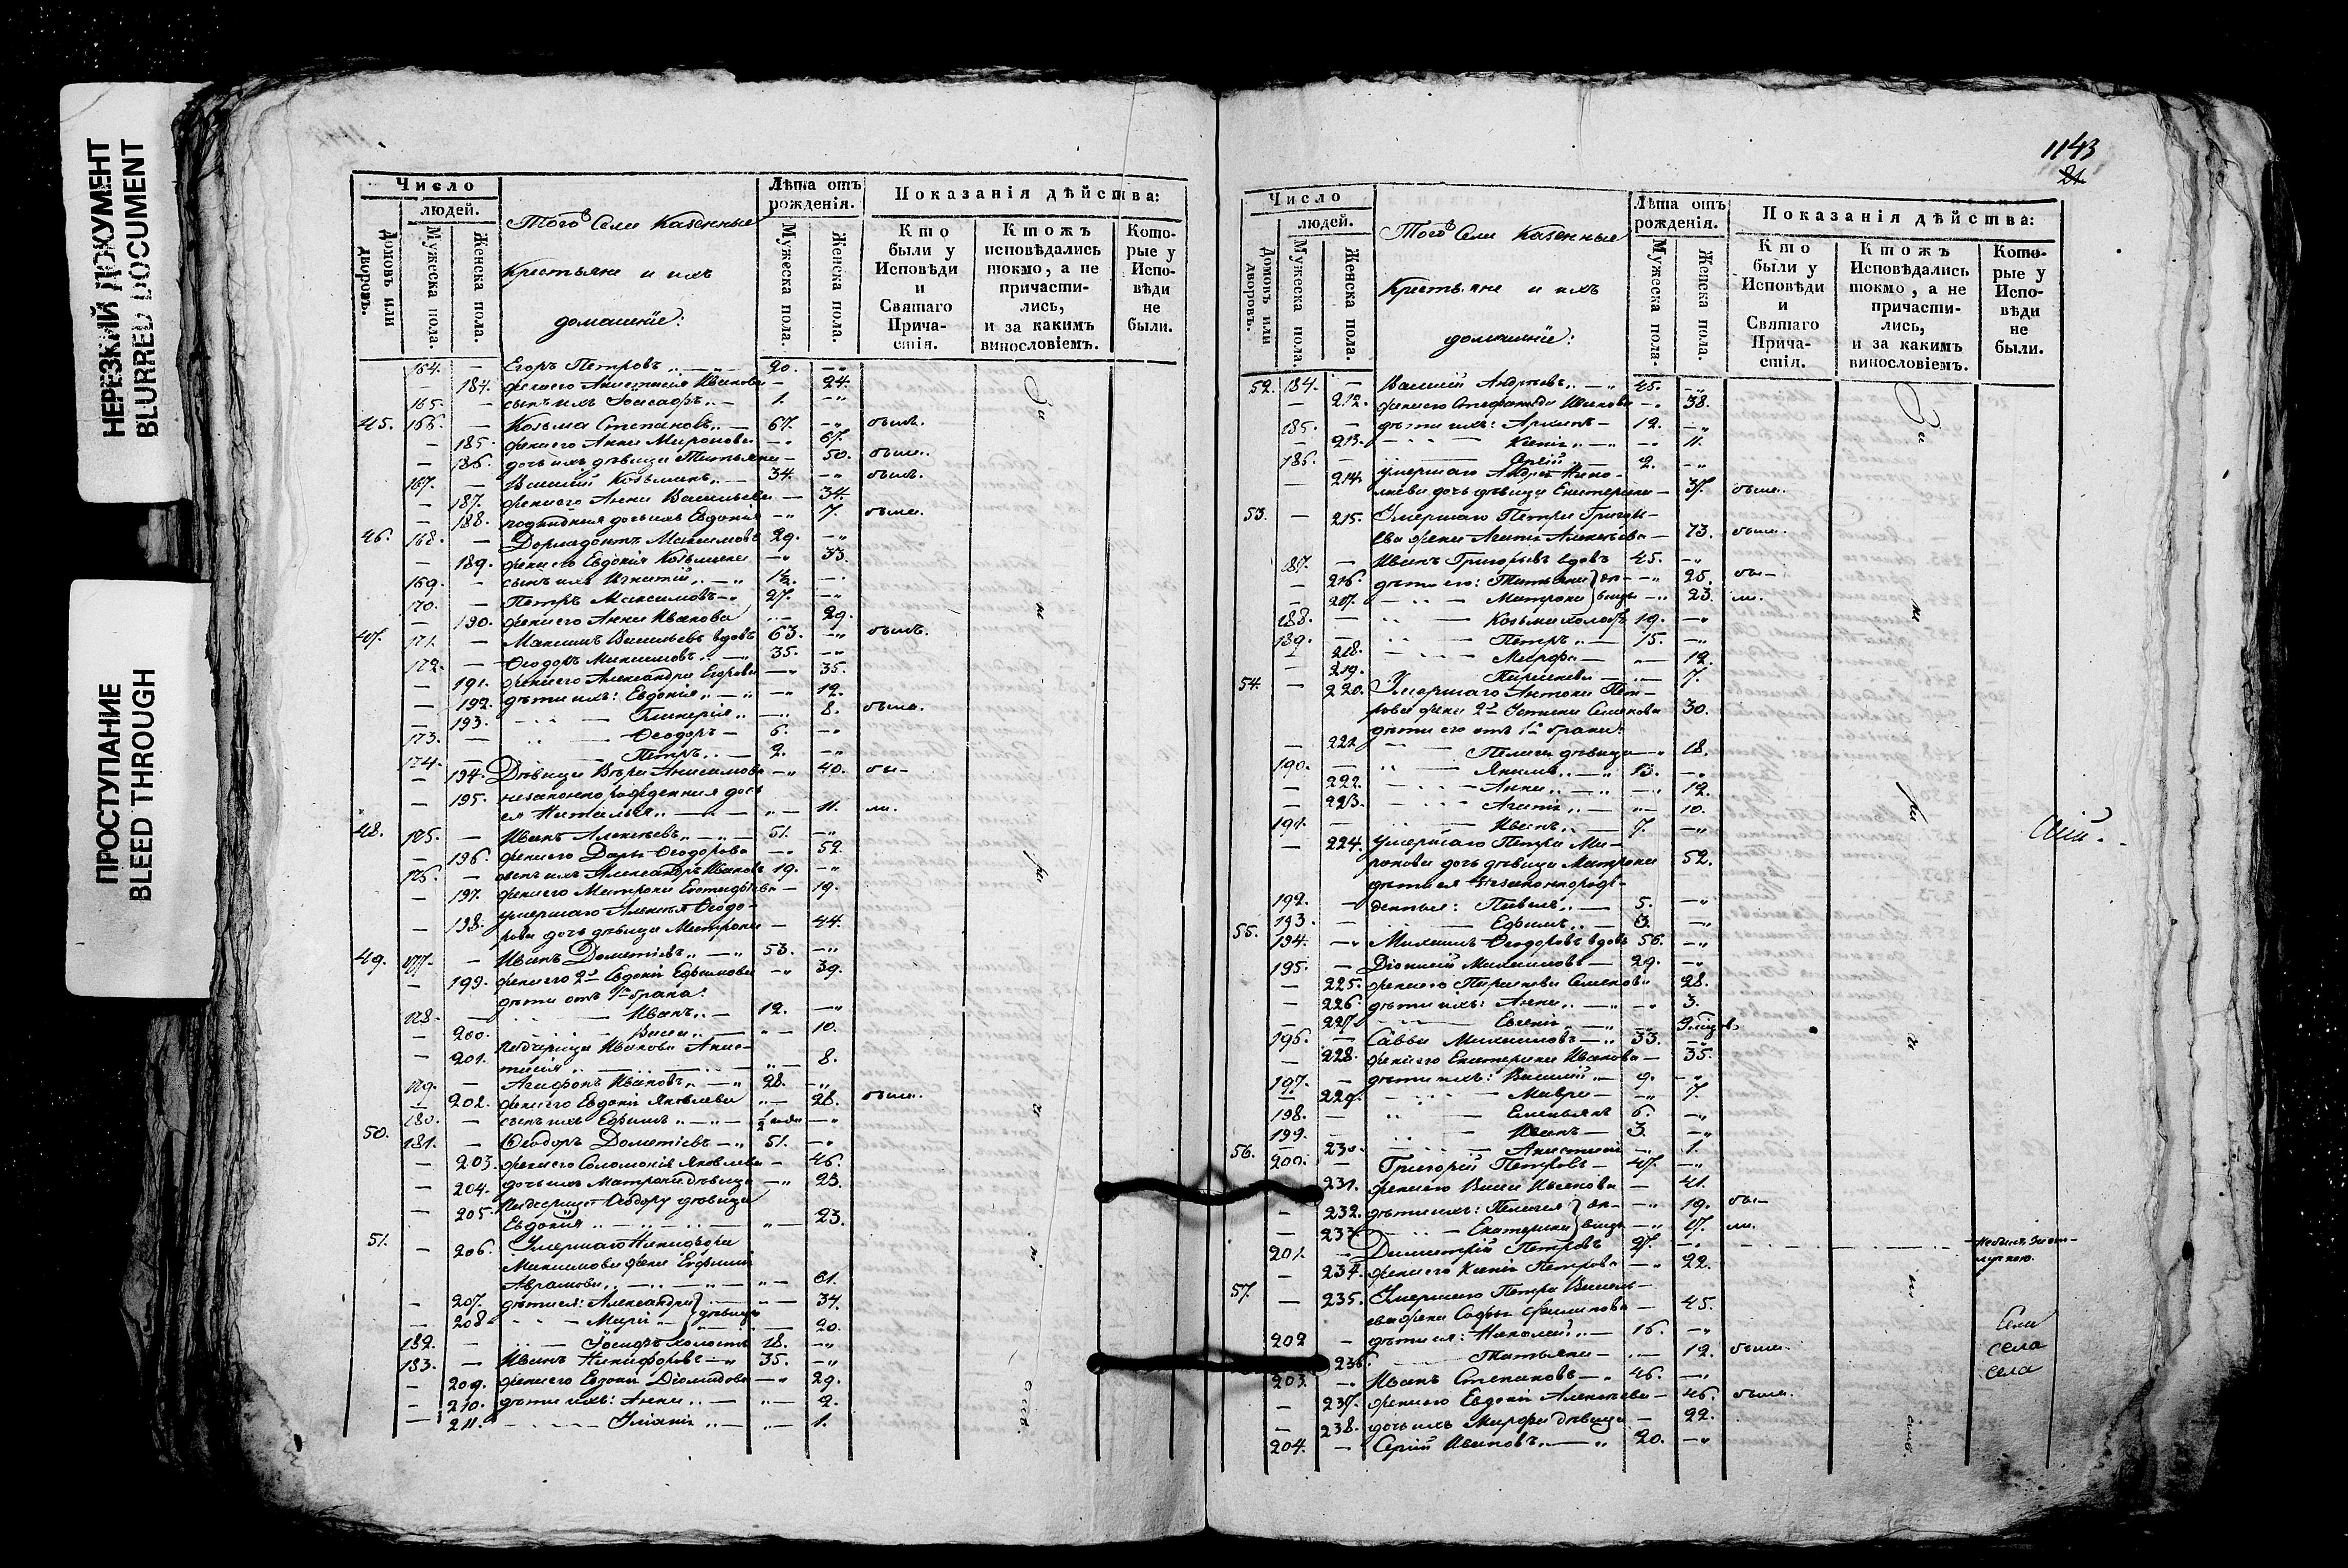 НЕРЕЗКИЙ ДОКУМЕНТ
BLURRED DOCUMENT
ПРОСТУПАНИЕ
BLEED THROUGH
Число
людей.
Домовъ или дворовъ.
Мужеска пола.
Женска пола.
Того Села Казенные
Крестьяне и ихъ
домашніе:
Лѣта отъ рожденія.
Мужеска пола.
Женска пола.
Показанія дѣйства:
Кто были у Исповѣди и Святаго Прича-стія.
Ктожъ исповѣдались токмо, а не причасти-лись, и за какимъ винословіемъ.
Кото-рые у Испо-вѣди не были.
164. — Егоръ Петровъ 20.
— 184. жена его Анастасія Иванова 24.
165. — сынъ ихъ Іоасафъ 1.
45. 166. — Козьма Степановъ 67. былъ.
— 185. жена его Анна Миронова 67.
— 186. дочь ихъ дѣвица Татьяна 50. была.
167. — Василій Козьминъ 34. былъ.
— 187. жена его Анна Васильева 34.
— 188. дочь ихъ Евдокія 7. была.
46. 168. — Дормедонтъ Максимовъ 29.
— 189. жена его Евдокія Козьмина 33.
169. — сынъ ихъ Игнатій 1½.
170. — Петръ Максимовъ 27.
— 190. жена его Анна Иванова 29.
47. 171. — Максимъ Васильевъ вдовъ 63. былъ.
172. — Ѳеодоръ Максимовъ 35.
— 191. жена его Александра Егорова 35.
— 192. дѣти ихъ: Евдокія 12.
— 193. Гликерія 8. была.
173. — Ѳеодоръ 6.
174. — Петръ 2.
— 194. Дѣвица Вѣра Анисимова 40. бы-
— 195. незаконно рожденная дочь
ея Наталья 11. ли.
48. 175. — Иванъ Алексѣевъ 51.
— 196. жена его Дарья Ѳеодорова 52.
176. — сынъ ихъ Александръ Ивановъ 19.
— 197. жена его Матрона Евстафьева 19.
— 198. умершаго Алексѣя Ѳеодо-
рова дочь дѣвица Матрона 44.
49. 177. — Иванъ Дометіевъ 53.
— 199. жена его 2я Евдокія Ефимова 39.
дѣти отъ 1го брака:
178. — Иванъ 12.
— 200. Васса 10.
— 201. Падчерица Иванова Анас-
тасія 8.
179. — Агафонъ Ивановъ 28.
— 202. жена его Евдокія Яковлева 28. была.
180. — сынъ ихъ Ефимъ ½
50. 181. — Ѳеодоръ Дометіевъ 51.
— 203. жена его Соломонія Яковлева 46.
— 204. дочь ихъ Матрона дѣвица 23.
— 205. Падчерица Ѳеодору дѣвица
Евдокія 23.
51. — 206. Умершаго Никифора
Максимова жена Евфимія
Аврамова 61.
— 207. дѣти ея: Александра 34.
— 208. Марія дѣвицы 20.
182. — Іосифъ холостъ 18.
183. — Иванъ Никифоровъ 35.
— 209. жена его Евдокія Діомидова 29.
— 210. дѣти ихъ: Анна 2.
— 211. Уліанія 1.
1143
21.
Число
людей.
Домовъ или дворовъ.
Мужеска пола.
Женска пола.
Того Села Казенные
Крестьяне и ихъ
домашніе:
Лѣта отъ рожденія.
Мужеска пола.
Женска пола.
Показанія дѣйства:
Кто были у Исповѣди и Святаго Прича-стія.
Ктожъ Исповѣдались токмо, а не причасти-лись, и за какимъ винословіемъ.
Кото-рые у Испо-вѣди не были.
52. 184. — Василій Андреевъ 45.
— 212. жена его Стефанида Иванова 38.
185. — дѣти ихъ: Архипъ 12.
— 213. Ксенія 11.
186. — Сергій 2.
— 214. умершаго Андрея Нико-
лаева дочь дѣвица Екатерина 37. была.
53. — 215. Умершаго Петра Григорь-
ева жена Агаѳья Алексѣева 73. была.
187. — Иванъ Григорьевъ вдовъ 45.
— 216. дѣти его: Татьяна дѣ- 25. бы-
— 217. Матрона вицы 23. ли.
188. — Козьма холостъ 19.
189. — Петръ 15.
— 218. Марфа 12.
— 219. Параскева 7.
54. — 220. Умершаго Антона Пет-
рова жена 2я Устинья Семенова 30.
дѣти его отъ 1го брака:
— 221. Пелагія дѣвица 18.
190. — Якимъ 13.
— 222. Анна 12.
— 223. Агафія 10.
191. — Иванъ 7.
— 224. умершаго Петра Ми-
ронова дочь дѣвица Матрона 52.
дѣти ея незаконнорож-
денныя:
192. — Павелъ 5.
193. — Ефимъ 3.
55. 194. — Михаилъ Ѳеодоровъ вдовъ 56.
195. — Діонисій Михаиловъ 29.
— 225. жена его Параскева Семенова 28.
— 226. дѣти ихъ: Анна 3.
— 227. Евгенія
196. — Савва Михаиловъ 33.
— 228. жена его Екатерина Иванова 35.
197. — дѣти ихъ: Василій 9.
— 229. Мавра 7.
198. — Емельянъ 6.
199. — Иванъ 3.
— 230. Анастасія 1.
56. 200. — Григорій Петровъ 47.
231. жена его Васса Иванова 41.
— 232. дѣти ихъ: Пелагія дѣ- 19. бы-
— 233. Екатерина вицы 17. ли.
201. — Димитрій Петровъ 27. не былъ за от-
лучкою.
— 234. жена его Ксенія Петрова 22.
57. — 235. Умершаго Петра Василь-
ева жена Софья Филипова 45.
202 — дѣти ея: Николай 16.
236. Татьяна 12. была.
203. — Иванъ Степановъ 46.
— 237. жена его Евдокія Алексѣева 46. была.
— 238. дочь ихъ Марфа дѣвица 22.
204. — Сергій Ивановъ 20.
Села
села
села